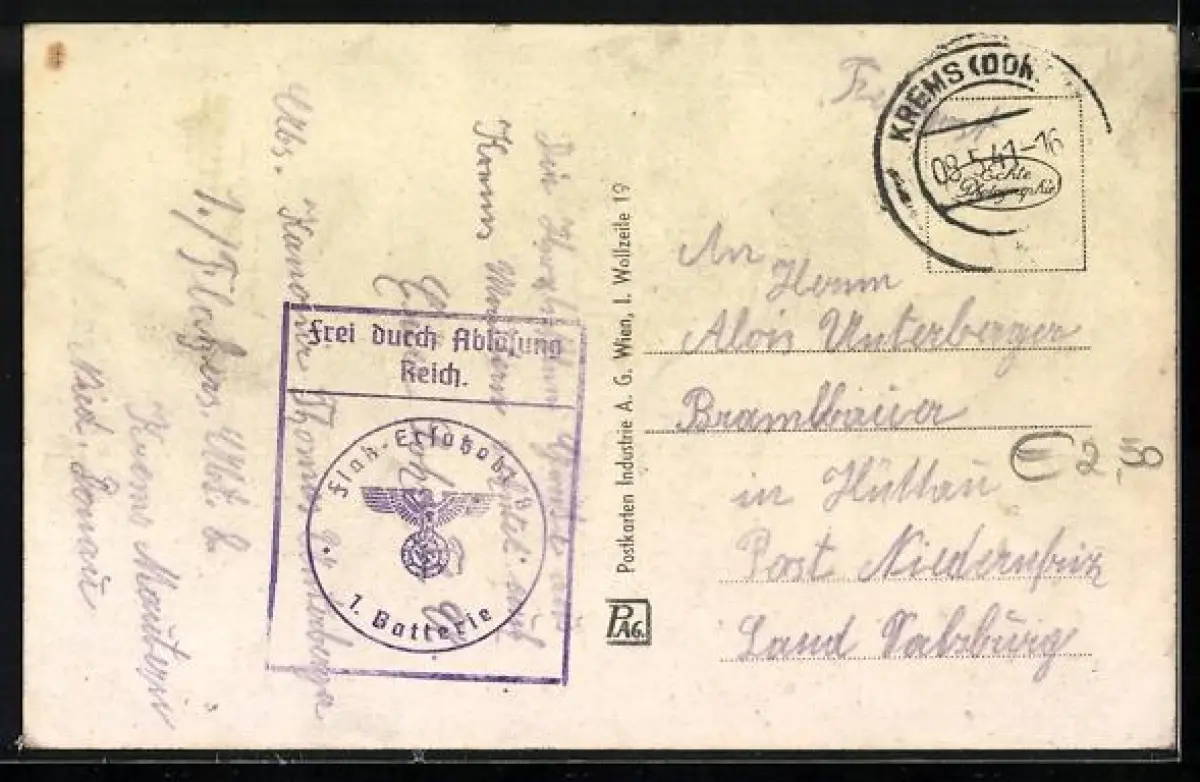 KREMS (DON
08.5.41-16
Echte
Photographie
An
Herrn
Alois Unterberger
Bramlbauer
in Hüttau
Post Niedernfritz
Land Salzburg
€ 2,50
Postkarten Industrie A. G. Wien, I. Wollzeile 19
PAG.
Die herzlichsten Grüße aus
Krems Mautern
Euer Sohn
Abs. Kanonier Thomas Unterberger
1./Flakers. Abt. 8
Krems Mautern
Nied. Donau
Frei durch Ablösung
Reich.
Flak-Ersatzabt. 8
1. Batterie